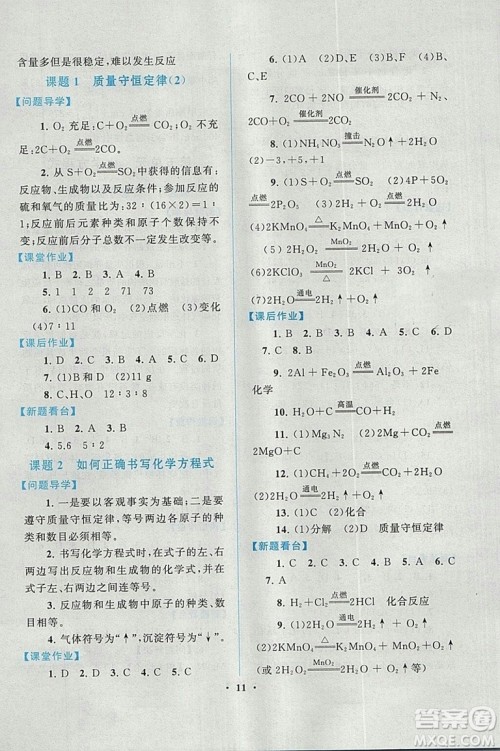 含量多但是很稳定,难以发生反应
课题1 质量守恒定律(2)
【问题导学】
1. O₂ 充足:C+O₂ 点燃 CO₂. O₂ 不充足:2C+O₂ 点燃 2CO.
2. 从 S+O₂ 点燃 SO₂ 中获得的信息有:
反应物、生成物以及反应条件;参加反应的
硫和氧气的质量比为:32∶(16×2)=1∶1;
反应前后元素种类和原子个数保持不变;
反应前后分子总数不变、质量不变等。
【课堂作业】
1. B 2. C 3. A 4. B
5. 1 2 11 2 71 73
6. (1)CO 和 O₂ (2)CO₂ (3)变化
(4)7∶11
【课后作业】
1. D 2. C 3. B 4. A 5. C 6. B
7. (1)B 和 D (2)11 g
8. D 9. C 10. C 11. D
【新题看台】
1. A 2. D 3. B
4. 5.6 5. 2
课题2 如何正确书写化学方程式
【问题导学】
1. 一是要以客观事实为基础;二是要
遵守质量守恒定律,等号两边各原子种类
和数目必须相等。
2. 书写化学方程式时,在式子的左、右
两边写上反应物和生成物的化学式,式子
左、右两边之间画一条短线。
3. 反应物和生成物中原子的种类、原子
数目相等。
4. 气体符号为“↑”,沉淀符号为“↓”。
【课堂作业】
1. D 2. C 3. C 4. D 5. C
6. (1)A (2)C (3)D (4)A (5)B、C
(6)D、E
7. 2CO + 2NO 催化剂 N₂ + 2CO₂
8. (1)NH₄NO₃ 撞击 2H₂O N₂ ↑
(2)-3,+1,+5
9. (1)S+O₂ 点燃 SO₂ (2)4P+5O₂
点燃 2P₂O₅ (3)2H₂O₂ MnO₂ 2H₂O+O₂ ↑
(4)2KMnO₄ △ K₂MnO₄+MnO₂+O₂ ↑
(5)2KClO₃ MnO₂ △ 2KCl+3O₂ ↑
(7)2H₂O 通电 2H₂ ↑ +O₂ ↑
【课后作业】
1. C 2. B 3. D 4. A 5. D 6. C
7. C 8. B
9. 2Al + Fe₂O₃ 点燃 Al₂O₃ + 2Fe
化学
10. C+H₂O 高温 CO+H₂
11. (1)Mg₃N₂ (2)+1
12. 2H₂O 通电 2H₂ ↑ +O₂ ↑
13. (1)C (2)化合
14. (1)分解 (2)D 质量守恒定律
【新题看台】
1. C 2. C 3. B 4. A 5. A 6. D
7. A
8. H₂+Cl₂ 点燃 2HCl 化合反应
9. (1)2KMnO₄ △ K₂MnO₄+MnO₂+O₂ ↑
(或 2H₂O₂ MnO₂ 2H₂O+O₂ ↑ 等)
· 11 ·
答案圈
MXQE.COM